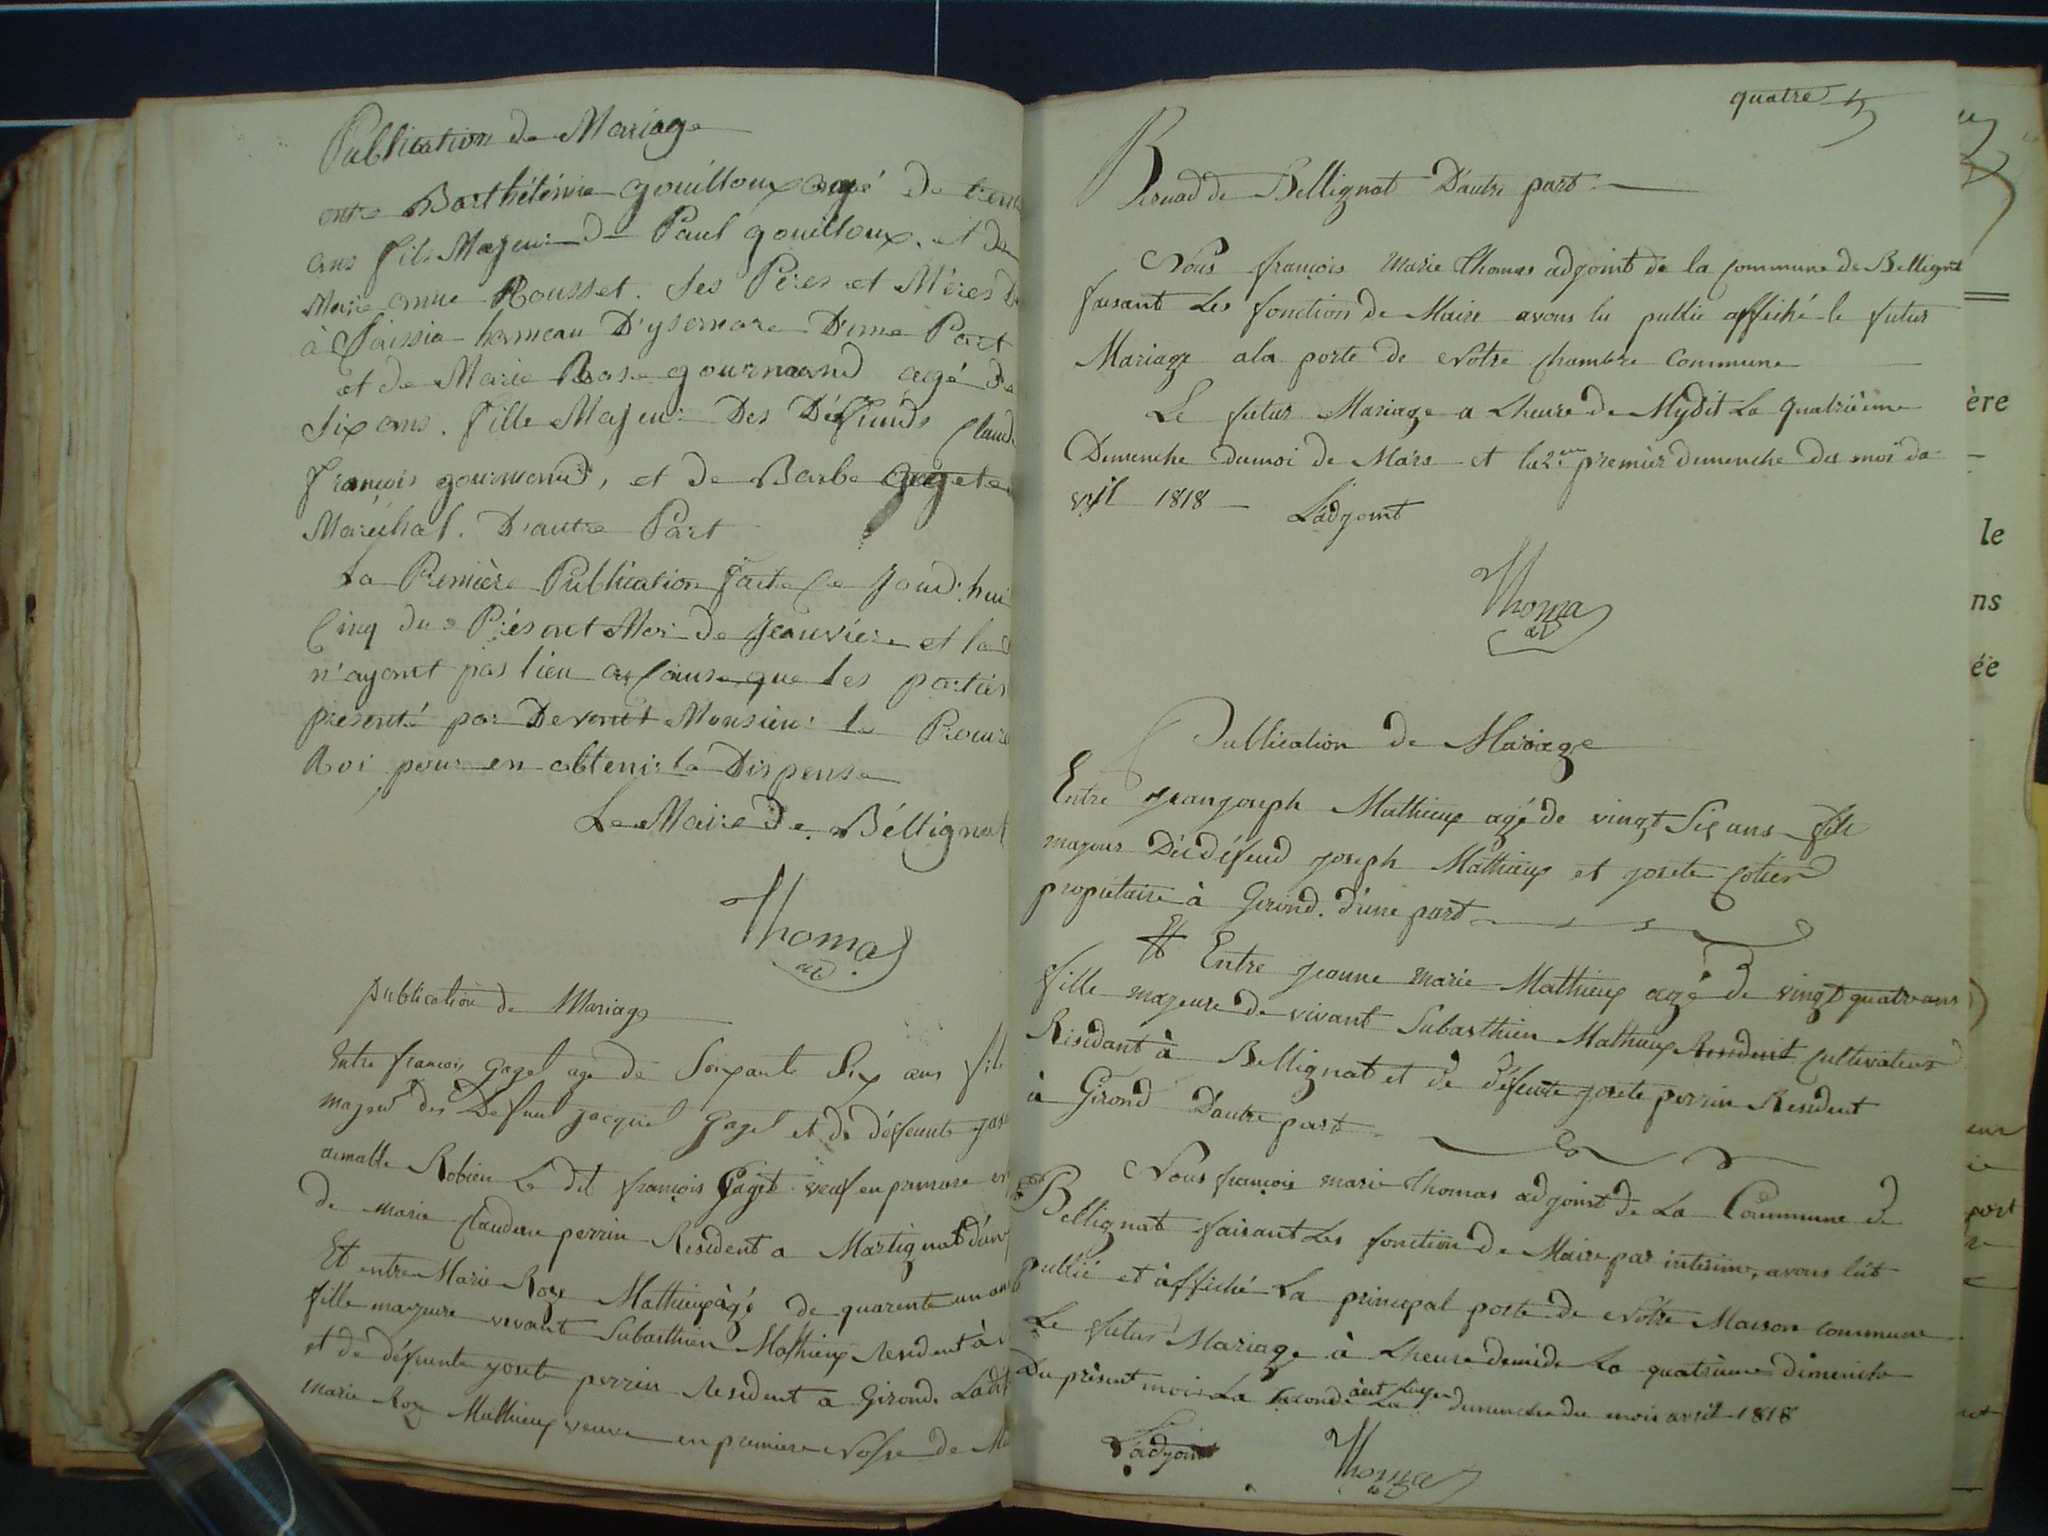 Publication de Mariage
entre Barthélémie gouilloux agé de trente
ans fils Majeur de Paul gouilloux. et de
Marie anne Rousset. ses Pères et Mères
à hameau D'ysernore D'une Part
et de Marie Rose gournand agé de
six ans. fille Majeur Des Défunds Claude
françois gournand, et de Barbe
Maréchal. D'autre Part
La Première Publication faite Ce jourd'hui
Cinq du Présent Moi de Jeanvière et la
n'ayant pas lieu a Cause que les parties
présenté par Devant Monsieur le Procure
Roi pour en obtenir la Dispense
Le Maire de Béllignat
Thomas
ad
publication de Mariage
Entre françois Gaget age de Soixante Six ans fils
majeur des Défunt jacque Gaget et de défeunte
aimable Robien Le dit françois Gaget veuf en premiere
de marie Claudine perrin Resident a Martignat d'une
Et entre Marie Roze Mathieux âgé de quarente un ans
fille majeure vivant Subasthien Mathieux resident à
et de défeunte josete perrin resident a Girond. Ladit
marie Roze Mathieux veuve en premiere Nosse de
quatre
Rouad de Bellignat D'autre part
Nous françois Marie Thomas adjoint de la Commune de Bellignat
faisant Les fonction de Maire avons lu publié affiché le futur
Mariage a la porte de Notre Chambre Commune
Le futur Mariage a Lheure de Mydit La quatrième
Dimenche du moi de Mars et la 2eme premier dimenche du moi da
vril 1818
L'adjoint
Thomas
ad
Publication de Mariage
Entre jean joseph Mathieux agé de vingt Six ans fils
majeur Dédéfeud joseph Mathieux et josete Cotier
propiétaire à Girond. d'une part
Et Entre jeanne marie Mathieux agé de vingt quatre ans
fille majeure de vivant Subasthien Mathieux Resident Cultivateur
Résidant à Bellignat et de défeunte josete perrin Resident
à Girond D'autre part
Nous françois marie thomas adjoint de La Commune de
Bellignat faisant Les fonction de Maire par intérime, avons lût
publié et àffiché La principal porte de Notre Maison commune
Le futur Mariage à Lheure demide La quatrième dimenche
Du présent mois La seconde dimenche du mois avril 1818
L'adjoint
Thomas
ad
ère
le
ns
ée